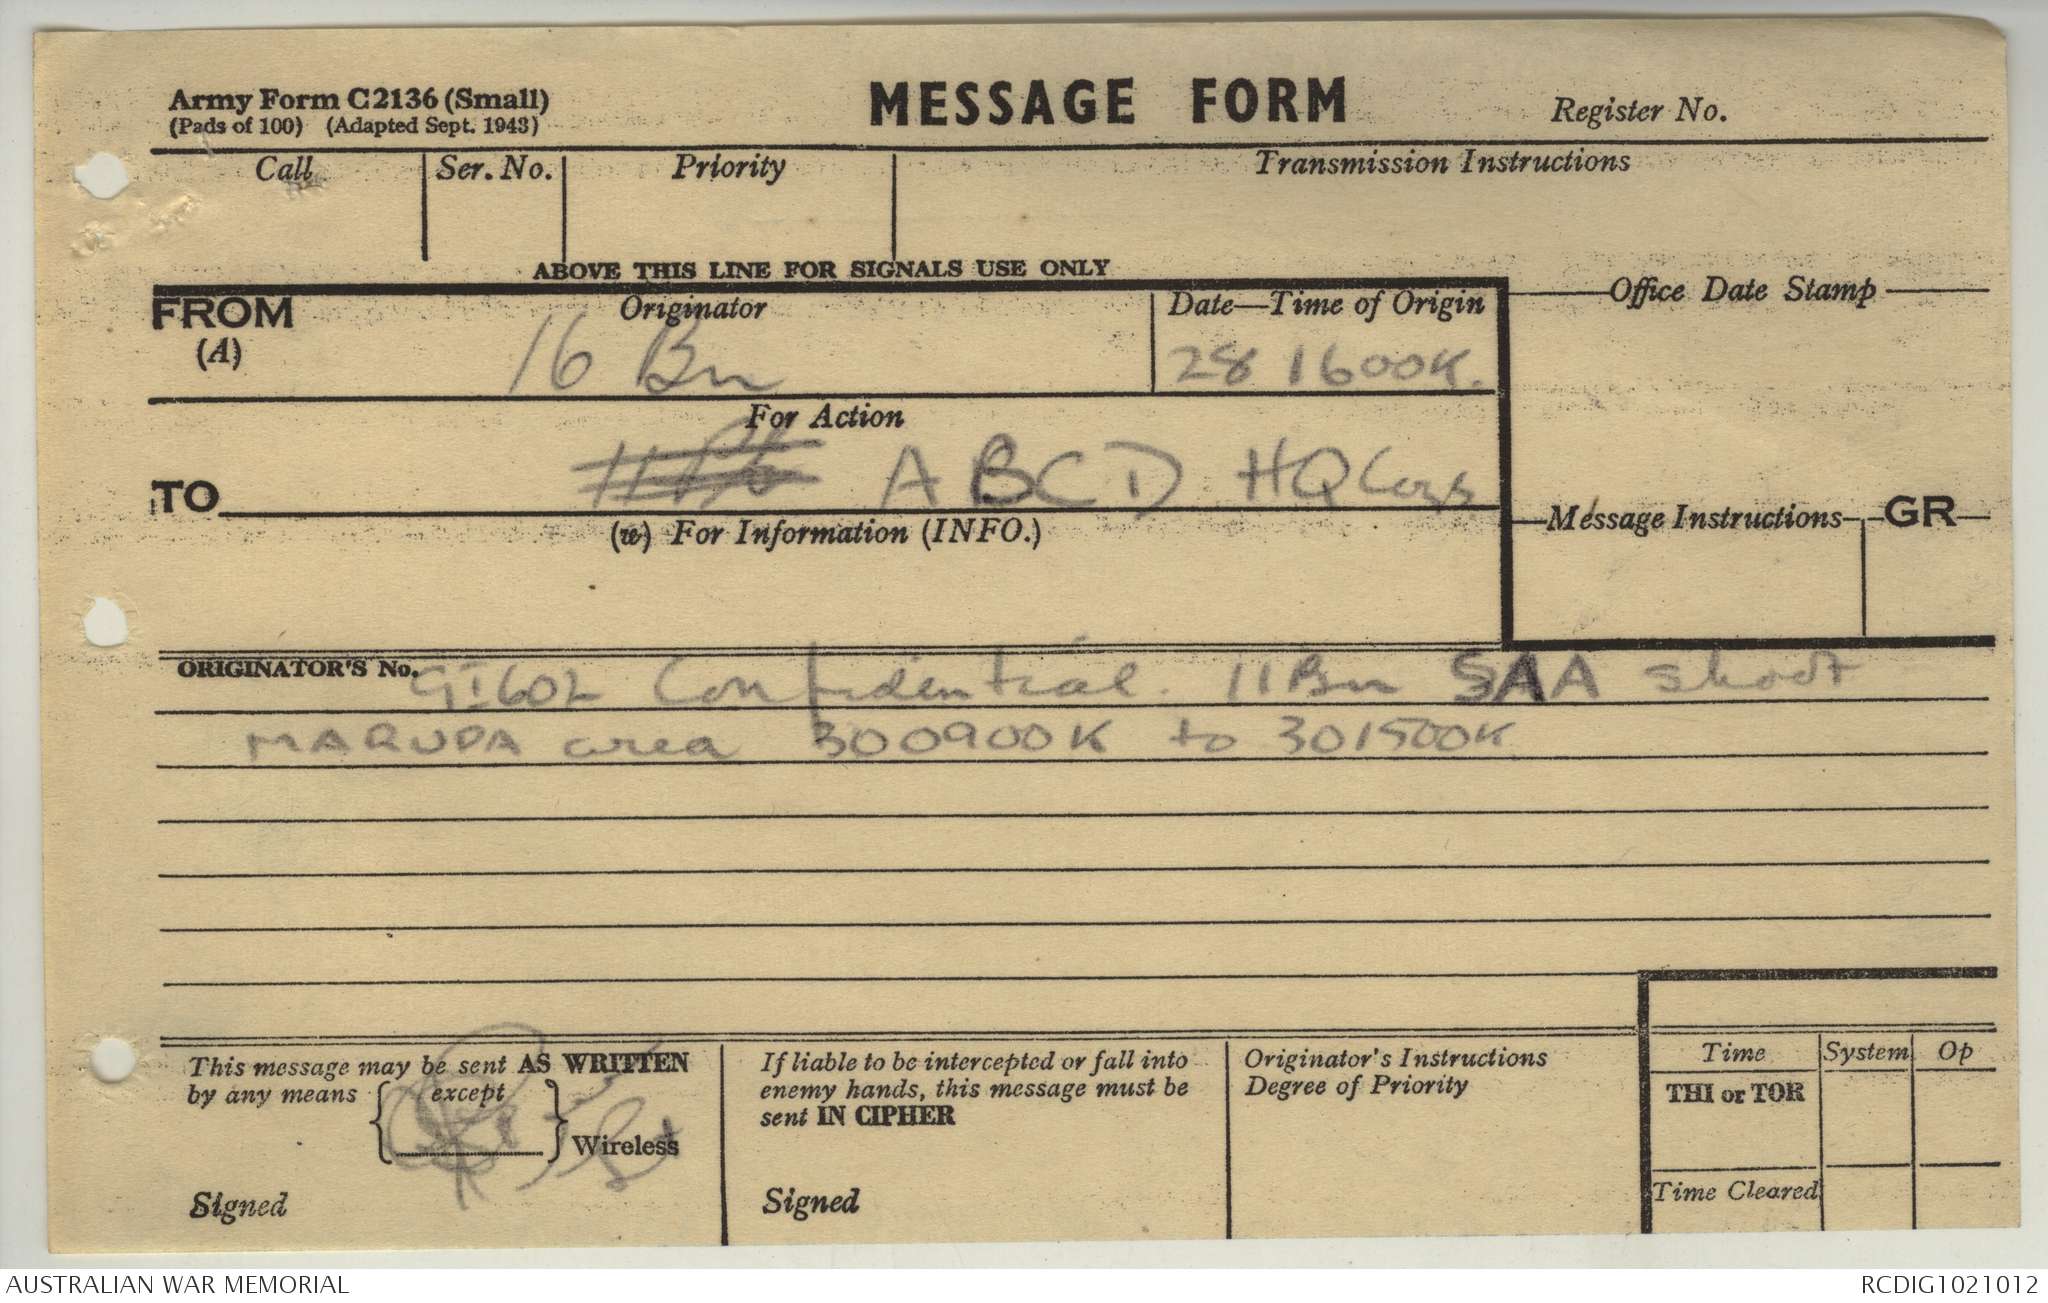 Army Form C2136 (Small)
(Pads of 100) (Adapted Sept. 1943)
MESSAGE FORM
Register No.
Call
Ser. No.
Priority
Transmission Instructions
ABOVE THIS LINE FOR SIGNALS USE ONLY
FROM
(A)
Originator
16 Bn
Date—Time of Origin
28 1600K.
Office Date Stamp
For Action
TO
A B C D HQ Coys
(w) For Information (INFO.)
Message Instructions
GR
ORIGINATOR'S No.
GI602 Confidential. 11 Bn SAA shoot
MARUPA area 300900K to 301500K
This message may be sent AS WRITTEN
by any means { except
} Wireless
Signed
If liable to be intercepted or fall into
enemy hands, this message must be
sent IN CIPHER
Signed
Originator's Instructions
Degree of Priority
Time
System
Op
THI or TOR
Time Cleared
AUSTRALIAN WAR MEMORIAL
RCDIG1021012